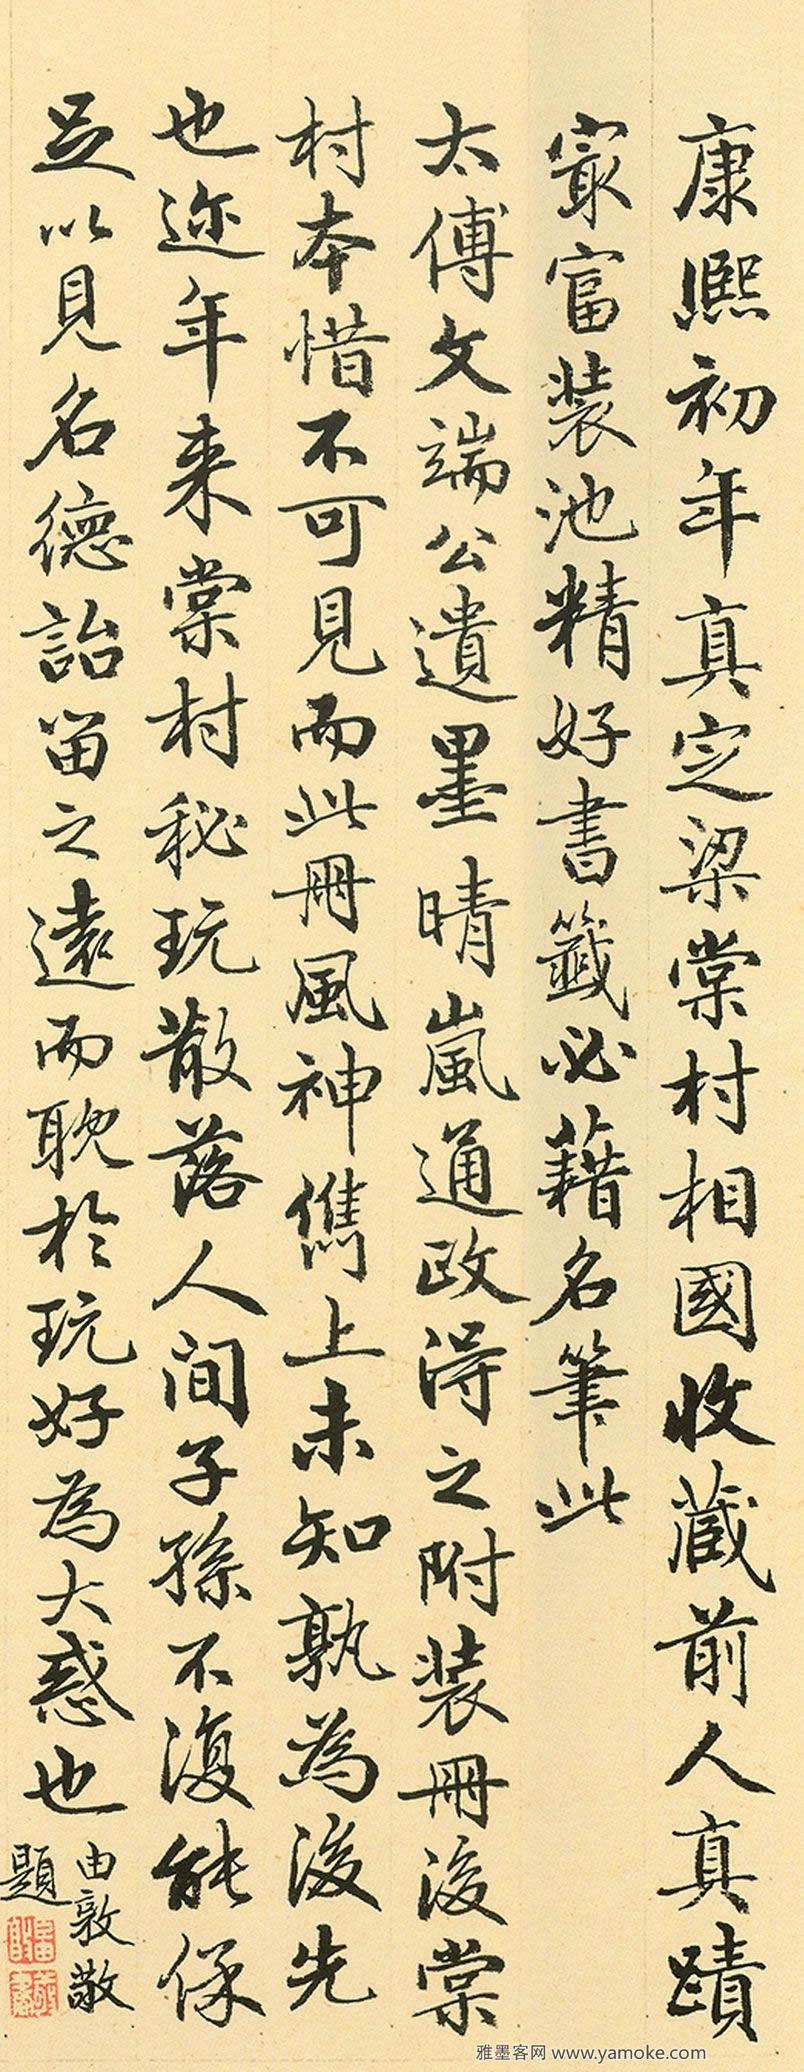 康熙初年真定梁棠村相國收藏前人真蹟
㝡富裝池精好書籤必藉名筆此
太傅文端公遺墨晴嵐通政得之附裝冊後棠
村本惜不可見而此冊風神儁上未知孰為後先
也迩年来棠村秘玩散落人间子孫不復能保
足以見名德詒留之遠而耽於玩好為大惑也
由敦敬
題
雅墨客网 www.yamoke.com